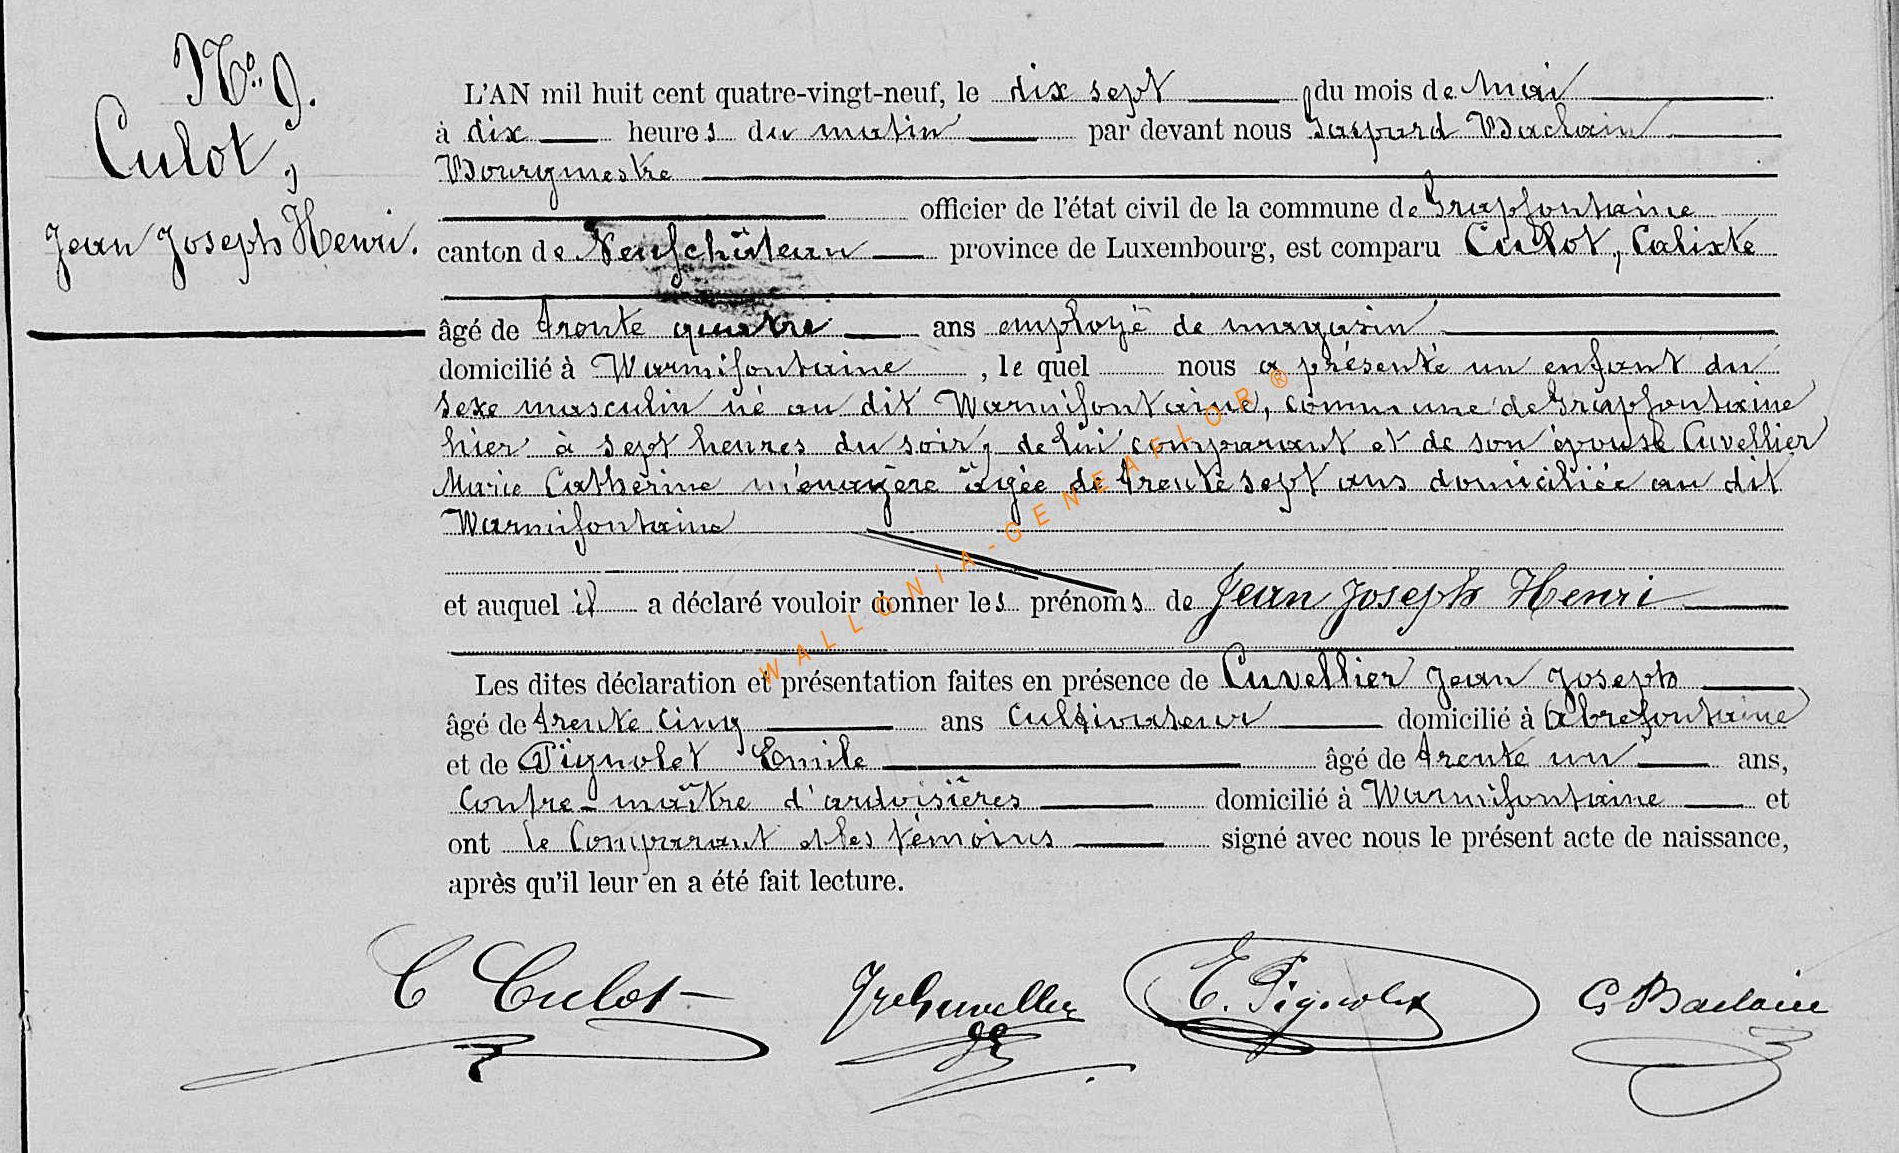 No. 9.
Culot,
Jean Joseph Henri.
L'AN mil huit cent quatre-vingt-neuf, le dix sept du mois de Mai
à dix heures du matin par devant nous Gaspard Baclain
Bourgmestre
officier de l'état civil de la commune de Grapfontaine
canton de Neufchâteau province de Luxembourg, est comparu Culot, Calixte
âgé de trente quatre ans employé de magasin
domicilié à Warmifontaine, le quel nous a présenté un enfant du
sexe masculin né au dit Warmifontaine, commune de Grapfontaine
hier à sept heures du soir, de lui comparant et de son épouse Cuvellier
Marie Cathérine ménagère âgée de trente sept ans domiciliée au dit
Warmifontaine
et auquel il a déclaré vouloir donner les prénoms de Jean Joseph Henri
Les dites déclaration et présentation faites en présence de Cuvellier Jean Joseph
âgé de trente cinq ans cultivateur domicilié à Abrefontaine
et de Pignolet Emile âgé de trente un ans,
contre-maître d'ardoisières domicilié à Warmifontaine et
ont le comparant et les témoins signé avec nous le présent acte de naissance,
après qu'il leur en a été fait lecture.
C Culot E. Pignolet G Baclain
WALLONIA-GENEAFLOR®